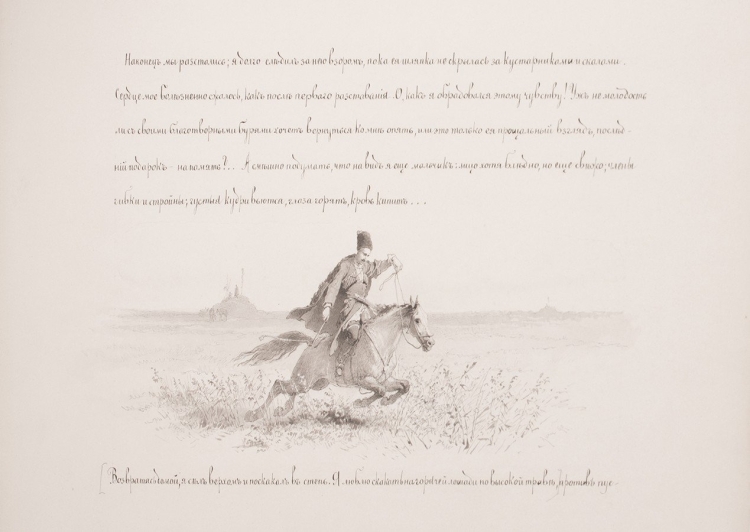 Наконецъ мы разстались; я долго слѣдилъ за нею взоромъ, пока ея шляпка не скрылась за кустарниками и скалами.
Сердце мое болѣзненно сжалось, какъ послѣ перваго разставанія. О, какъ я обрадовался этому чувству! Ужъ не молодость
ли съ своими благотворными бурями хочетъ вернуться ко мнѣ опять, или это только ея прощальный взглядъ, послѣд-
ній подарокъ – на память?... А смѣшно подумать, что на видъ я еще мальчикъ: лицо хотя блѣдно, но еще свѣжо; члены
гибки и стройны; густыя кудри вьются, глаза горятъ, кровь кипитъ...
Возвратясь домой, я сѣлъ верхомъ и поскакалъ въ степь. Я люблю скакать на горячей лошади по высокой травѣ, противъ пус-